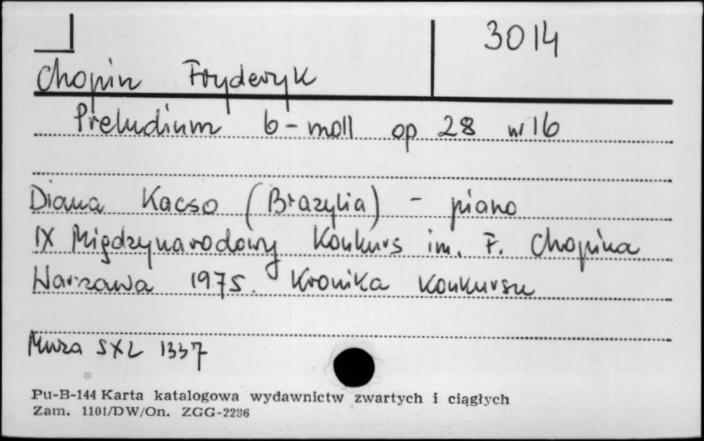 3014
Chopin Fryderyk
Preludium b-moll op 28 nr 16
Diana Kacso (Brazylia) - piano
IX Międzynarodowy Konkurs im. F. Chopina
Warszawa 1975. Kronika Konkursu
Muza SXL 1337
Pu-B-144 Karta katalogowa wydawnictw zwartych i ciągłych
Zam. 1101/DW/On. ZGG-2286